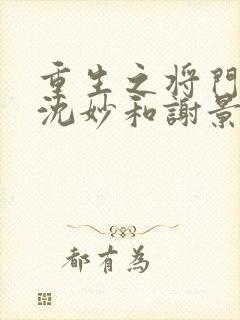 重生之将門
沈妙和謝景
都有為